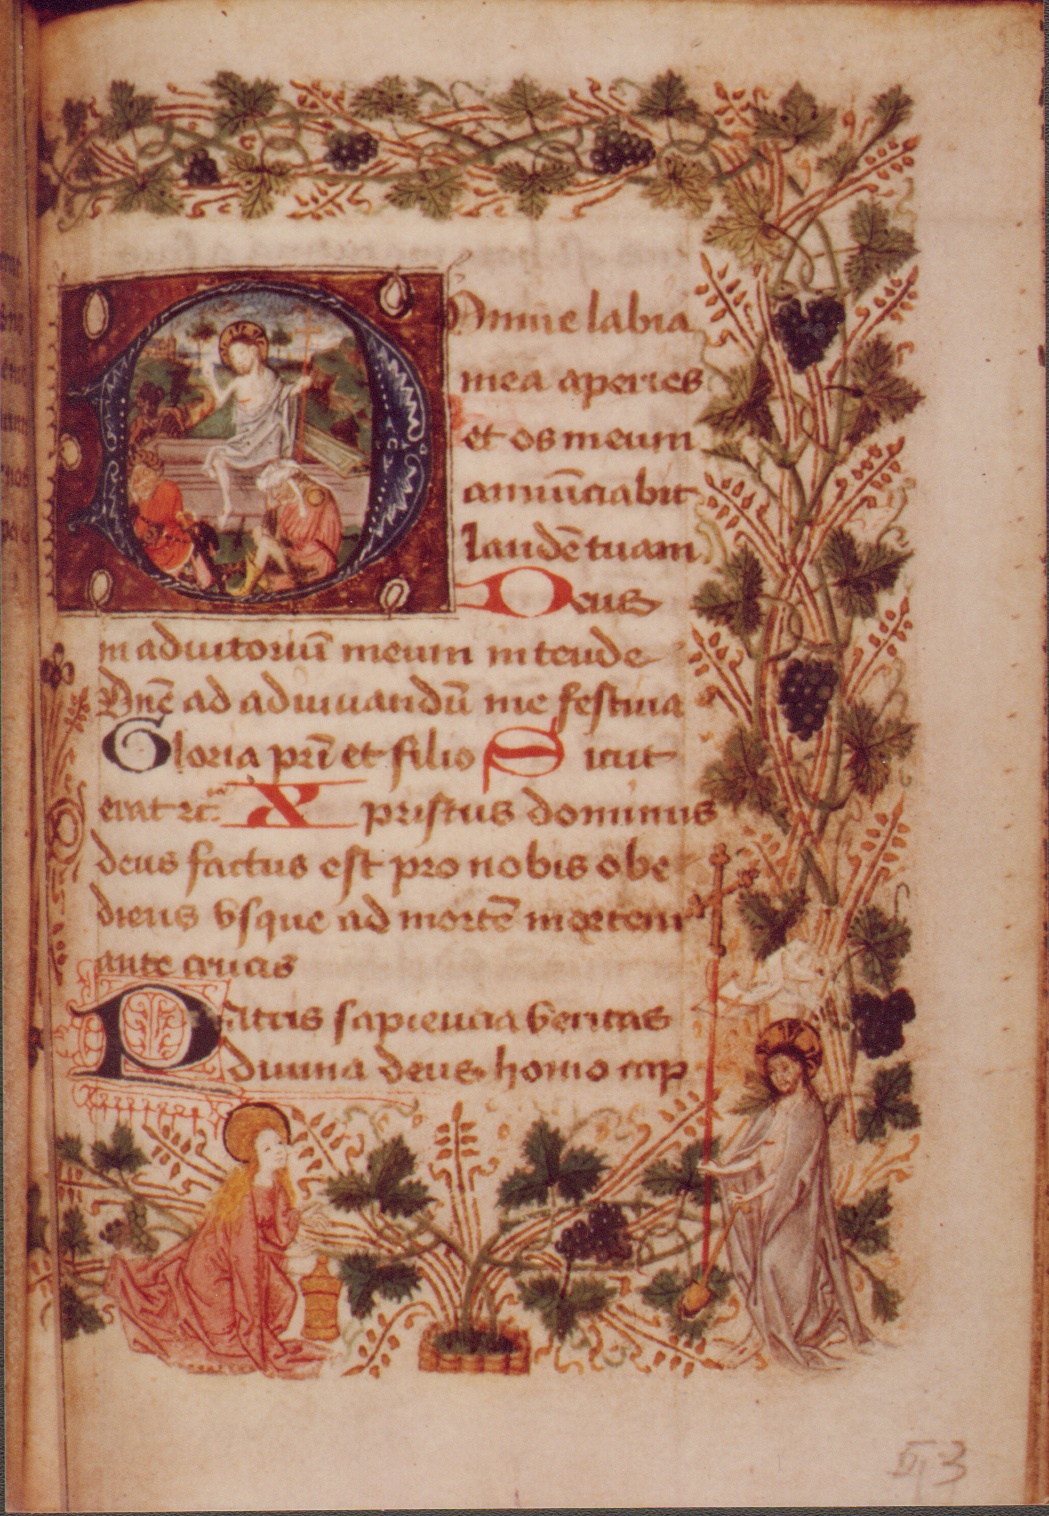 Domine labia
mea aperies
et os meum
annūciabit
laudē tuam
Deus
in adiutoriū meum intende
Dn̄e ad adiuuandū me festina
Gloria pr̄i et filio Sicut
erat ⁊c̄. Xpristus dominus
deus factus est pro nobis obe
diens vsque ad mortē mortem
aute crucis
Patris sapiencia veritas
diuina deus homo cap